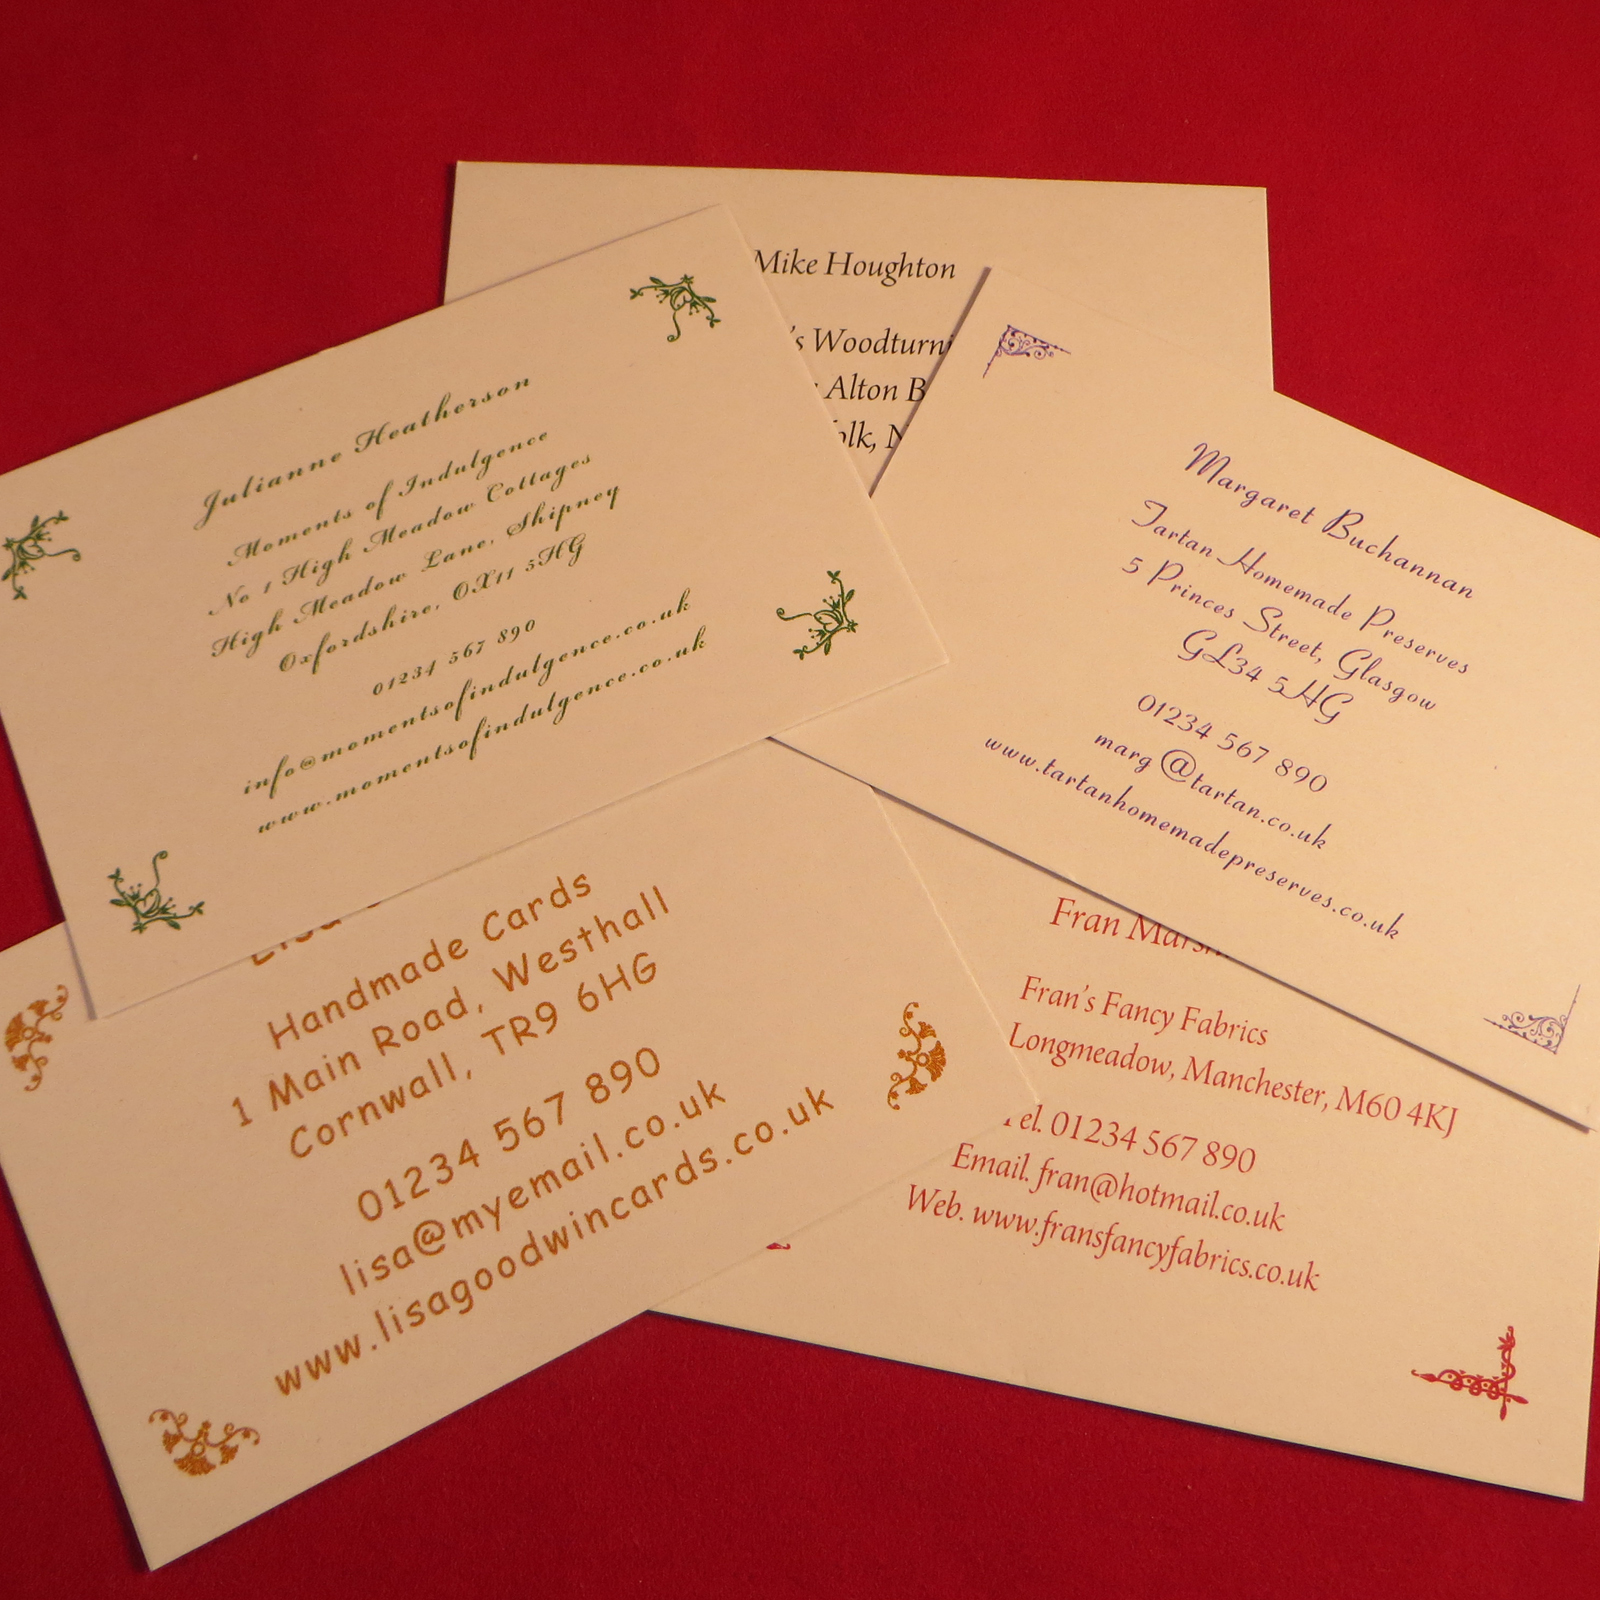 Mike Houghton
's Woodturni
Alton B
olk, N
Julianne Heatherson
Moments of Indulgence
No 1 High Meadow Cottages
High Meadow Lane, Shipney
Oxfordshire, OX11 5HG
01234 567 890
info@momentsofindulgence.co.uk
www.momentsofindulgence.co.uk
Margaret Buchannan
Tartan Homemade Preserves
5 Princes Street, Glasgow
GL34 5HG
01234 567 890
marg@tartan.co.uk
www.tartanhomemadepreserves.co.uk
Lisa
Handmade Cards
1 Main Road, Westhall
Cornwall, TR9 6HG
01234 567 890
lisa@myemail.co.uk
www.lisagoodwincards.co.uk
Fran Marsh
Fran's Fancy Fabrics
Longmeadow, Manchester, M60 4KJ
Tel. 01234 567 890
Email. fran@hotmail.co.uk
Web. www.fransfancyfabrics.co.uk